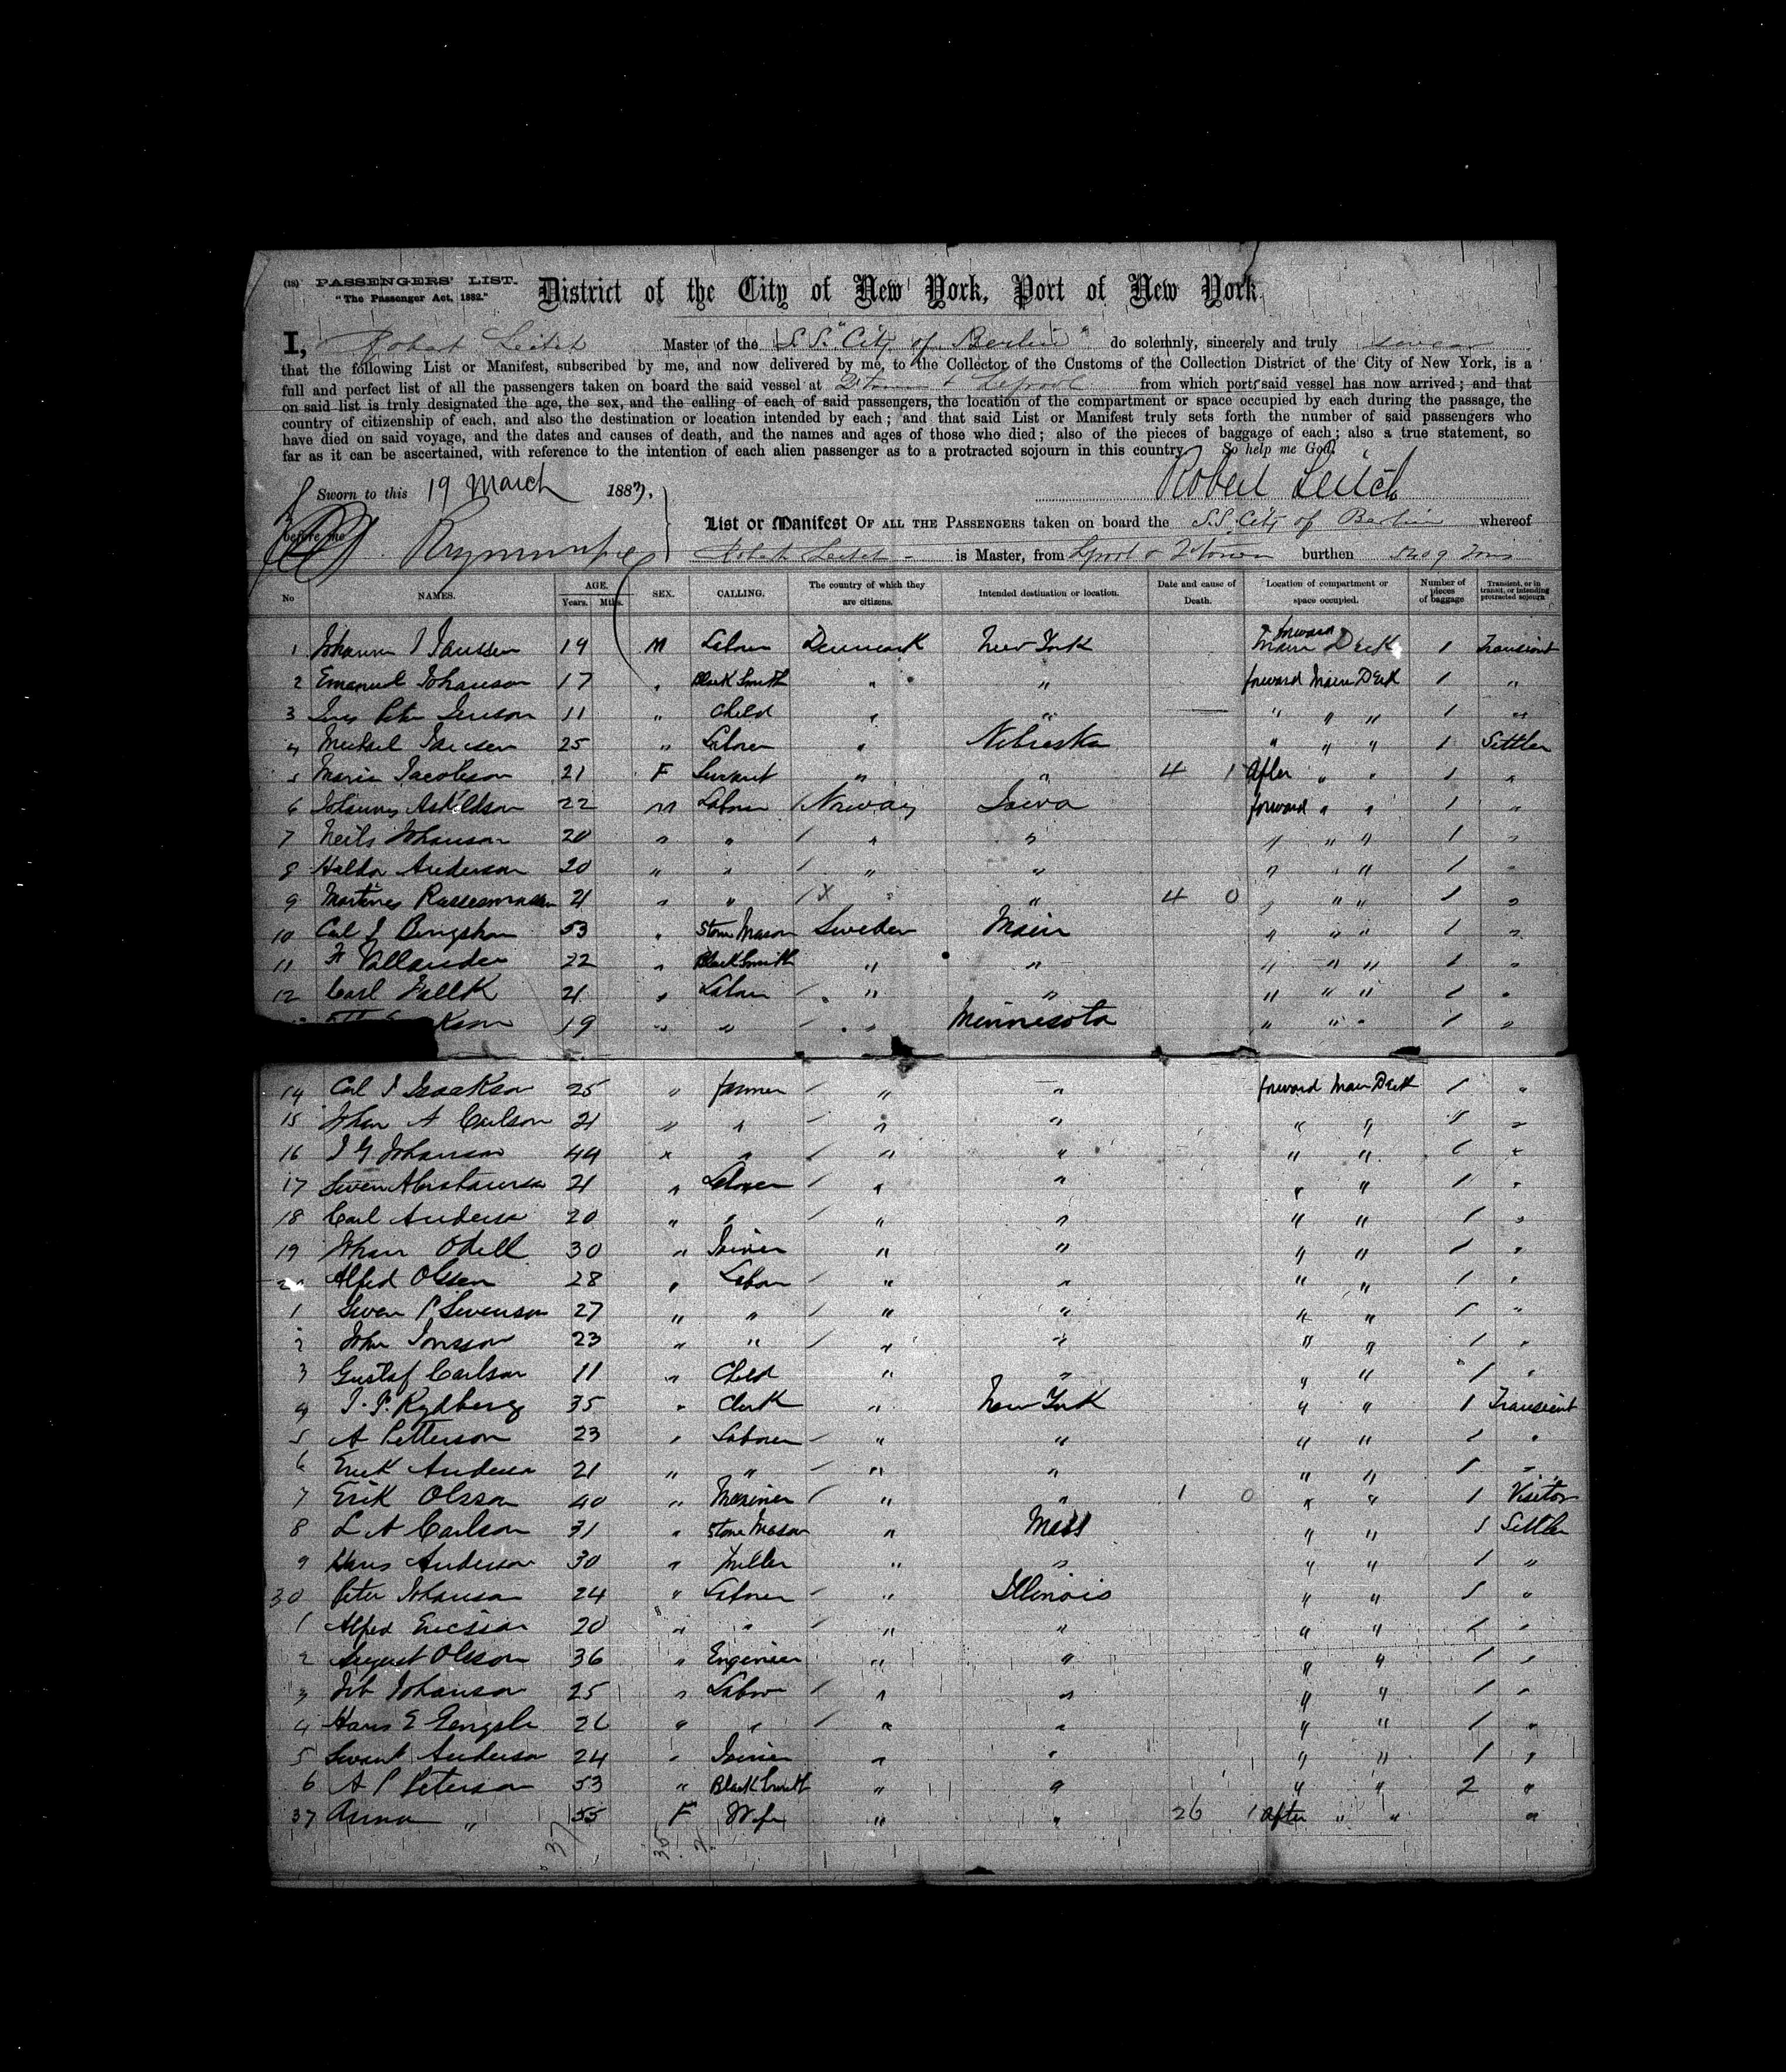 (18) PASSENGERS' LIST.
"The Passenger Act, 1882."
District of the City of New York, Port of New York.
I, Robert Leitch Master of the S.S. "City of Berlin" do solemnly, sincerely and truly swear
that the following List or Manifest, subscribed by me, and now delivered by me, to the Collector of the Customs of the Collection District of the City of New York, is a
full and perfect list of all the passengers taken on board the said vessel at Qtown + Lpool from which ports said vessel has now arrived; and that
on said list is truly designated the age, the sex, and the calling of each of said passengers, the location of the compartment or space occupied by each during the passage, the
country of citizenship of each, and also the destination or location intended by each; and that said List or Manifest truly sets forth the number of said passengers who
have died on said voyage, and the dates and causes of death, and the names and ages of those who died; also of the pieces of baggage of each; also a true statement, so
far as it can be ascertained, with reference to the intention of each alien passenger as to a protracted sojourn in this country. So help me God.
Robert Leitch
Sworn to this 19 March 1883,
before me
List or Manifest OF ALL THE PASSENGERS taken on board the S.S. City of Berlin whereof
Robert Leitch is Master, from Lpool & Qtown burthen Tons
No NAMES. AGE. Years. Mths. SEX. CALLING. The country of which they are citizens. Intended destination or location. Date and cause of Death. Location of compartment or space occupied. Number of pieces of baggage Transient, or in transit, or intending protracted sojourn
1 19 M Labour Denmark New York forward Main Deck 1 Transient
2 Emanuel Johanson 17 " Black Smith " " forward Main Deck 1 "
3 11 " Child " " " " " 1 "
4 25 " Labour " Nebraska " " " 1 Settler
5 Maria Jacobson 21 F Servant " " 4 1 After " " 1 "
6 Johannes Askeldson 22 M Labour / Norway Iowa forward " " 1 "
7 Neils Johanson 20 " " / " " " " " 1 "
8 Haldor Anderson 20 " " / " " " " " 1 "
9 21 " " / X " " 4 0 " " " 1 "
10 53 " Stone Mason Sweden Main " " " 1 "
11 22 " Black Smith " " " " " 1 "
12 Carl Fallk 21 " Labour / " " " " " 1 "
19 " " / " Minnesota " " " 1 "
14 Carl J Isackson 25 " farmer / " " forward Main Deck 1 "
15 Johan A Carlson 21 " " / " " " " 1 "
16 J G Johanson 44 " " / " " " " "
17 21 " Labourer / " " " " 1 "
18 Carl Anderson 20 " " / " " " " 1 "
19 Johan Odell 30 " Joiner " " " " 1 "
Alfred Olsson 28 " Labour / " " " " 1 "
1 Swen P Swenson 27 " " / " " " " 1 "
2 John Jonsson 23 " " / " " " " 1 "
3 Gustaf Carlson 11 " Child " " " " 1 "
4 J. P. Rydberg 35 " Clerk " New York " " 1 Transient
5 A Petterson 23 " Labourer / " " " " 1 "
6 Erick Anderson 21 " " / " " " " 1 "
7 Erik Olsson 40 " Mariner / " " 1 0 " " 1 Visitor
8 L A Carlson 31 " Stone Mason " Mass " " 1 Settler
9 Hans Anderson 30 " Miller " " " " 1 "
30 Peter Johanson 24 " Labourer / " Illinois " " 1 "
1 Alfred Ericsson 20 " " / " " " " 1 "
2 August Olsson 36 " Engineer " " " " 1 "
3 Johanson 25 " Labour / " " " " 1 "
4 Hans E 26 " " / " " " " 1 "
5 Swant Anderson 24 " Joiner " " " " 1 "
6 A P Peterson 53 " Black Smith " " " " 2 "
37 Anna " 55 F Wife " " 26 1 After " " "
37 35 2